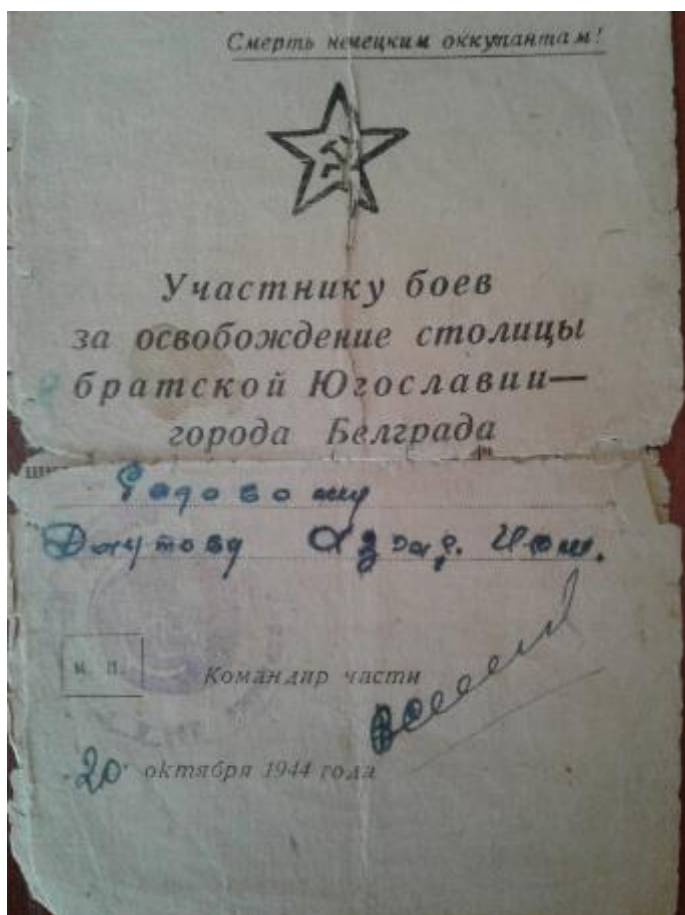 Смерть немецким оккупантам!
Участнику боев
за освобождение столицы
братской Югославии—
города Белграда
Рядовому
Даутову
М. П.
Командир части
20 октября 1944 года